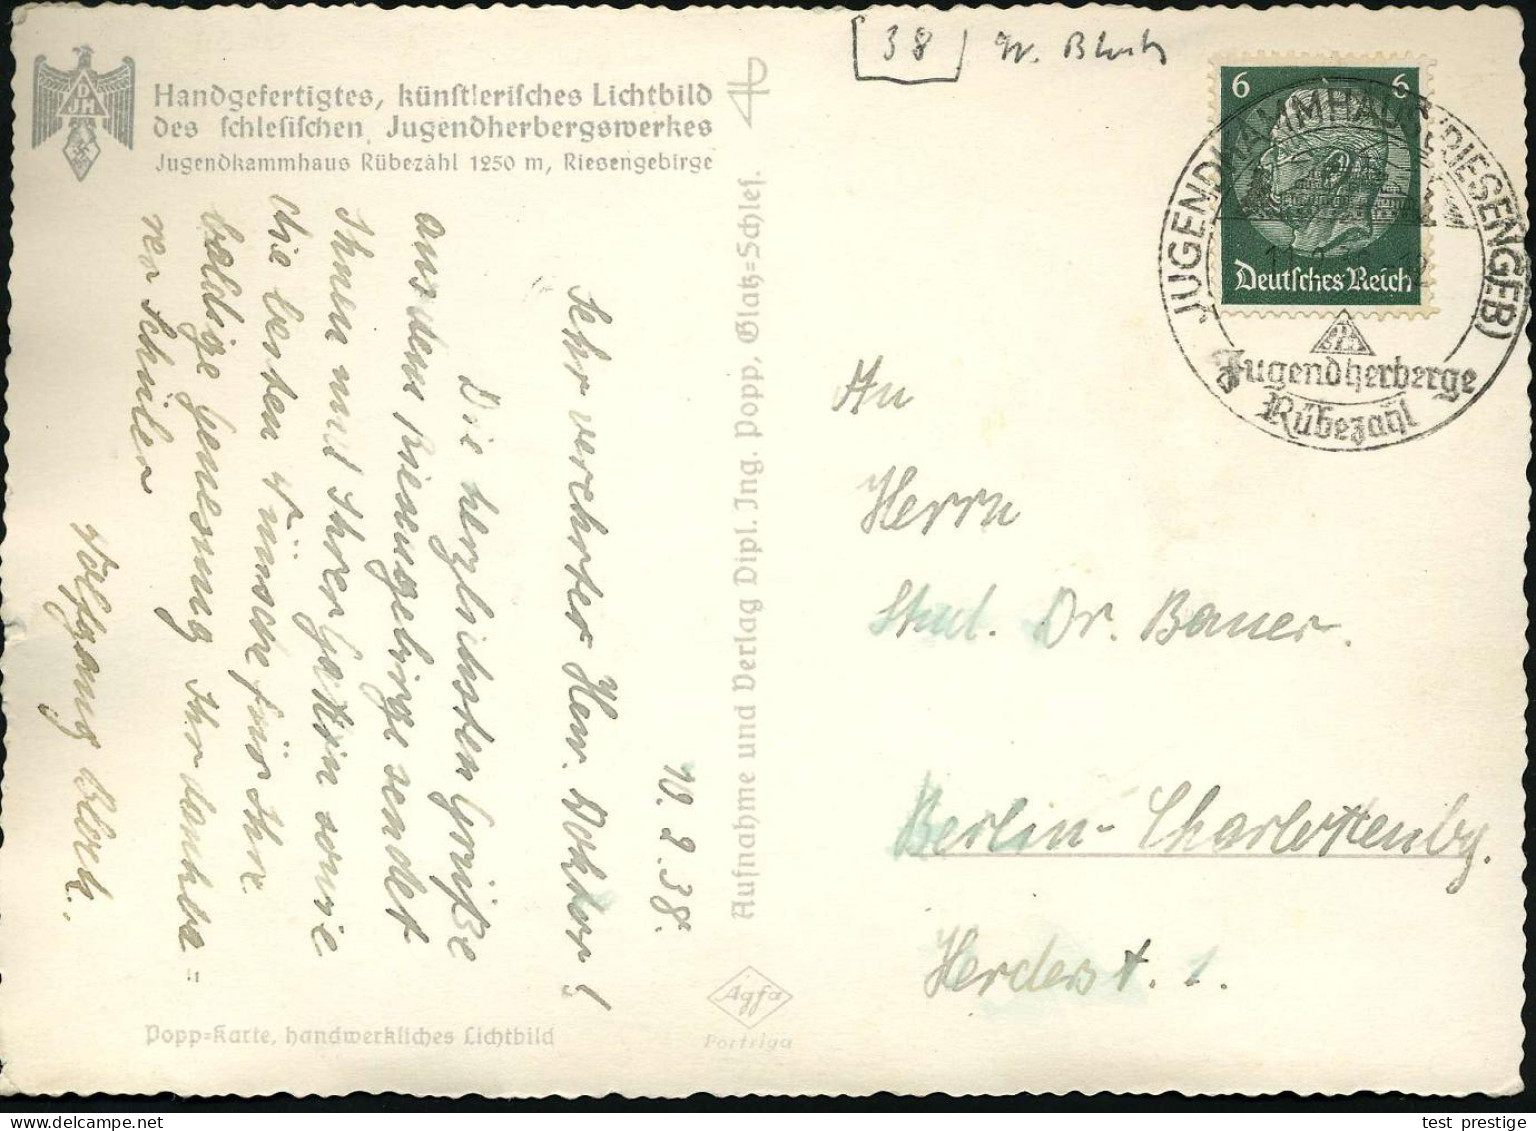 [38] W. Bloch
D
JH
Handgefertigtes, künstlerisches Lichtbild
des schlesischen Jugendherbergswerkes
Jugendkammhaus Rübezahl 1250 m, Riesengebirge
6 6
Deutsches Reich
JUGENDKAMMHAUS (RIESENGEB)
Jugendherberge
Rübezahl
10.2.38.
Sehr verehrter Herr Doktor!
Die herzlichsten Grüße
aus dem Riesengebirge sendet
Ihnen und Ihrer Gattin sowie
die besten Wünsche für Ihre
baldige Genesung Ihr dankba=
rer Schüler
Wolfgang Bloch.
Aufnahme und Verlag Dipl. Ing. Popp, Glatz=Schles.
An
Herrn
Stud. Dr. Bauer.
Berlin-Charlottenbg.
Herderst. 1.
Popp=Karte, handwerkliches Lichtbild
Agfa
Portriga
test_prestige